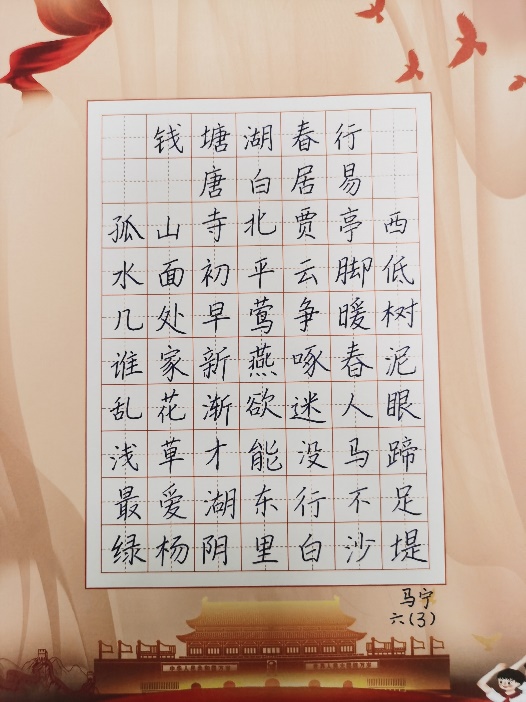 钱塘湖春行
唐 白居易
孤山寺北贾亭西
水面初平云脚低
几处早莺争暖树
谁家新燕啄春泥
乱花渐欲迷人眼
浅草才能没马蹄
最爱湖东行不足
绿杨阴里白沙堤
马宁
六(3)